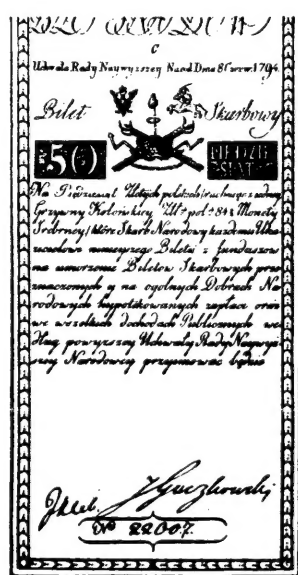 C
Uchwała Rady Naywyższey Narod Dnia 8 Czerw. 1794.
Bilet Skarbowy
50 PIĘDZIE SIĄT
Na Pięćdziesiąt Złotych
Grzywny Kolońskiey Zł. pol. 84½ Monety
Srebrney, które Skarb Narodowy każdemu Oka
zicielowi ninieyszego Biletu z funduszow
na umorzenie Biletow Skarbowych prze
znaczonych y na ogolnych Dobrach Na
rodowych hypotekowanych zapłaci oraz
we wszelkich dochodach Publicznych we
dług powyższey Uchwały Rady Naywyż
szey Narodowey przyimować będzie
J Gaczkowski
No 22007.